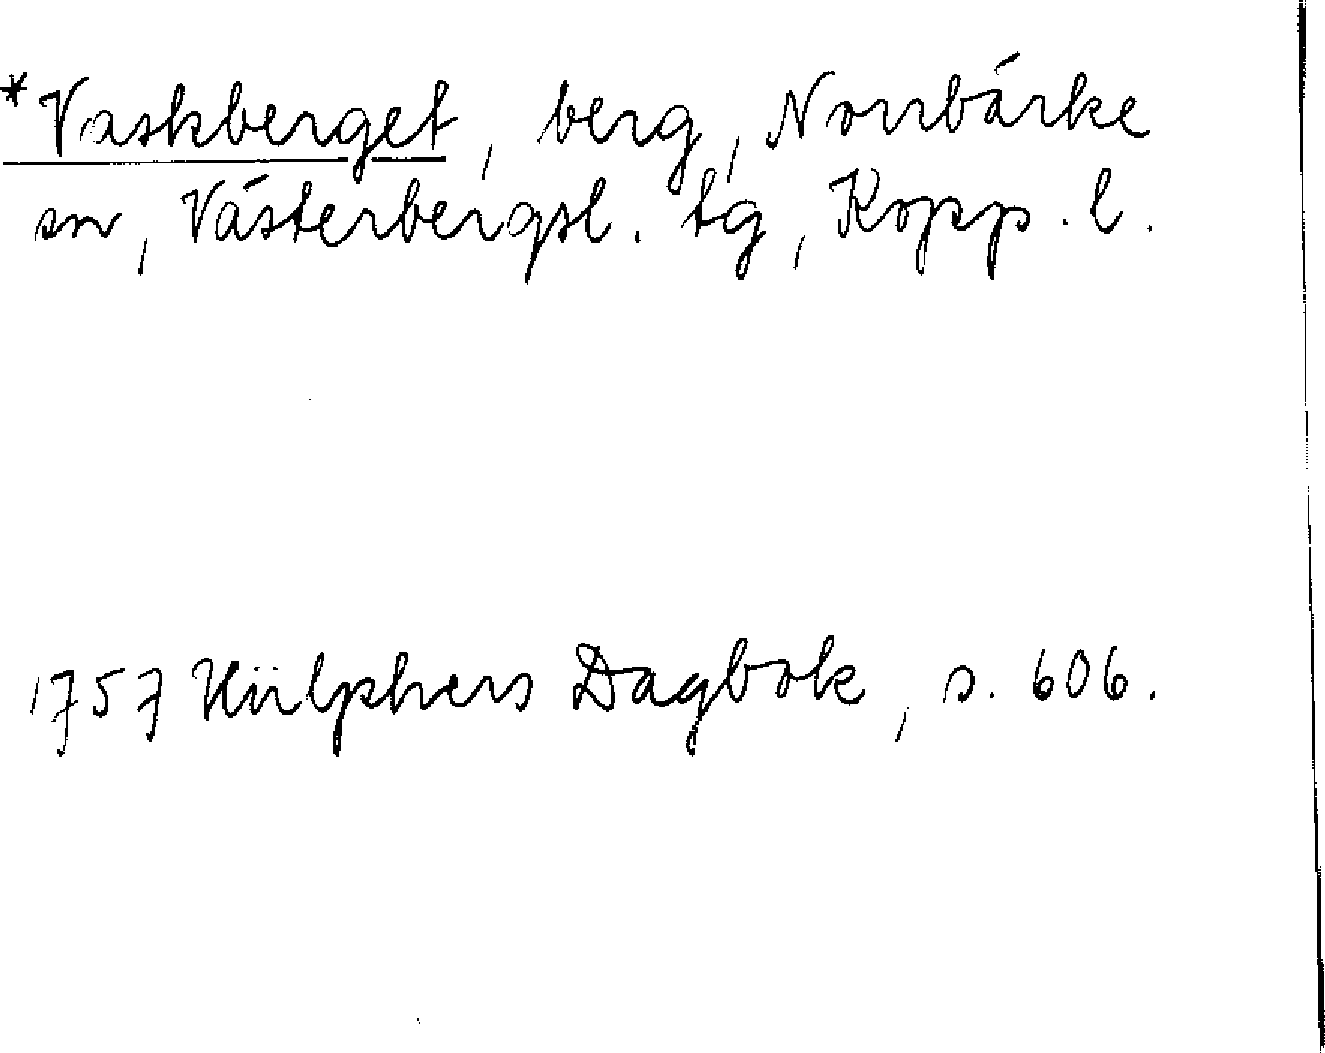 *Vaskberget, berg, Norrbärke
sn, Västerbergsl. tg, Kopp. l.
1757 Hülphers Dagbok, s. 606.